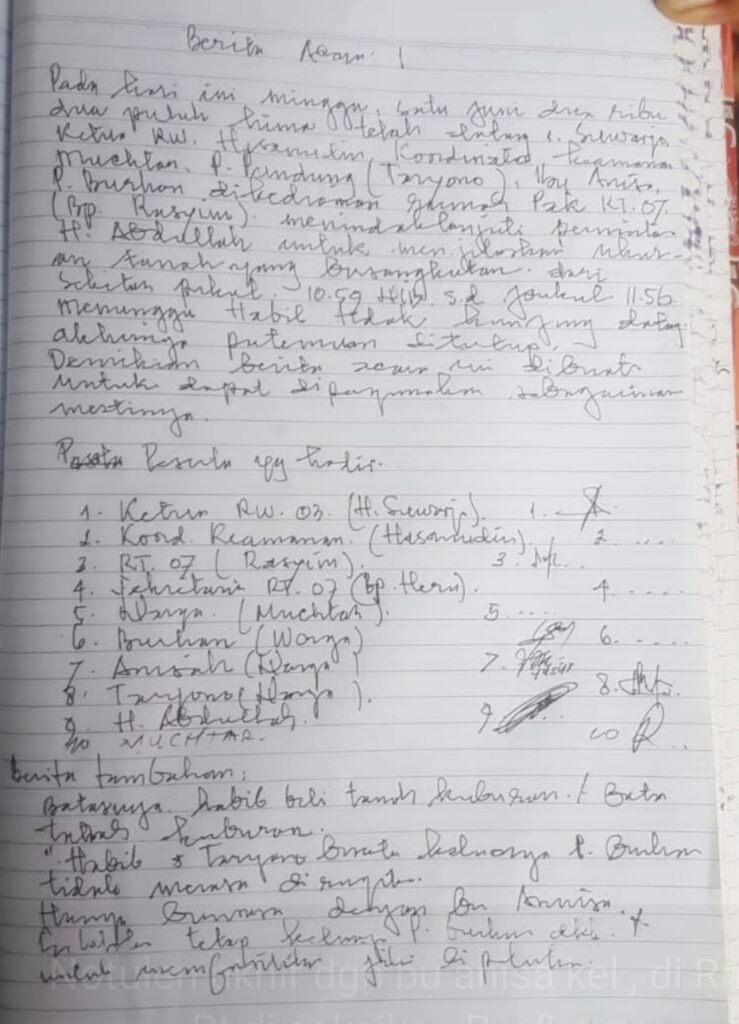 Berita Acara 1
Pada hari ini minggu, satu Juni dua ribu
dua puluh lima telah datang 1. Suwarjo
Ketua RW. Hasanudin, Koordinator keamanan
Muchtar, P. (Taryono), Ibu Anisa,
P. Burhan dikediaman rumah Pak RT.07
(Bp. Rasyim). menindak lanjuti
H. Abdullah untuk menjelaskan ukur-
an tanah yang bersangkutan dari
pukul 10.59 WIB s.d 11.56
Menunggu Habib tidak kunjung datang
akhirnya ditutup.
Demikian berita acara ini dibuat
untuk dapat dipergunakan sebagaimana
mestinya.
Peserta yg hadir.
1. Ketua RW. 03. (H. Suwarjo). 1.
2. Koord. Keamanan. (Hasanudin) 2. ....
3. RT. 07 (Rasyim). 3.
4. Sekretaris RT. 07 (Bp. Heru). 4. ....
5. Warga. (Muchtar). 5. ....
6. Burhan (Warga) 6. ....
7. Anisah (Warga) 7.
8. Taryono (Warga). 8.
9. H. Abdullah. 9
10 MUCHTAR. 10
berita tambahan:
Batasnya habib beli tanah kuburan.
kuburan.
"Habib Taryono keluarga P. Burhan
tidak merasa dirugikan.
Hanya dengan bu Annisa.
tetap P. Burhan
untuk memfasilitasi jika
Notulen dgn bu anisa kel , di